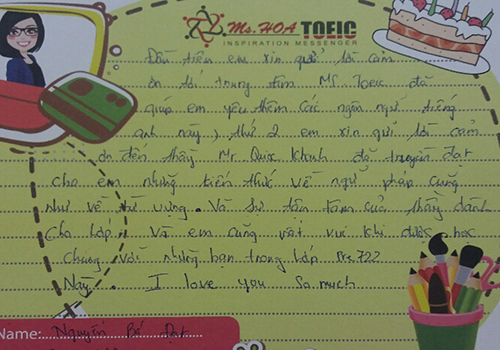 Ms. HOA TOEIC
INSPIRATION MESSENGER
Đầu tiên em xin gửi lời cảm
ơn tới trung tâm MS. Toeic đã
giúp em yêu thêm các ngôn ngữ tiếng
anh này, thứ 2 em xin gửi lời cảm
ơn đến thầy Mr Quốc Khánh đã truyền đạt
cho em những kiến thức về ngữ pháp cũng
như về từ vựng. Và sự tận tâm của thầy dành
cho lớp. Và em cũng rất vui khi được học
chung với những bạn trong lớp 722
Này. I love you so much
Name: Nguyễn Bá